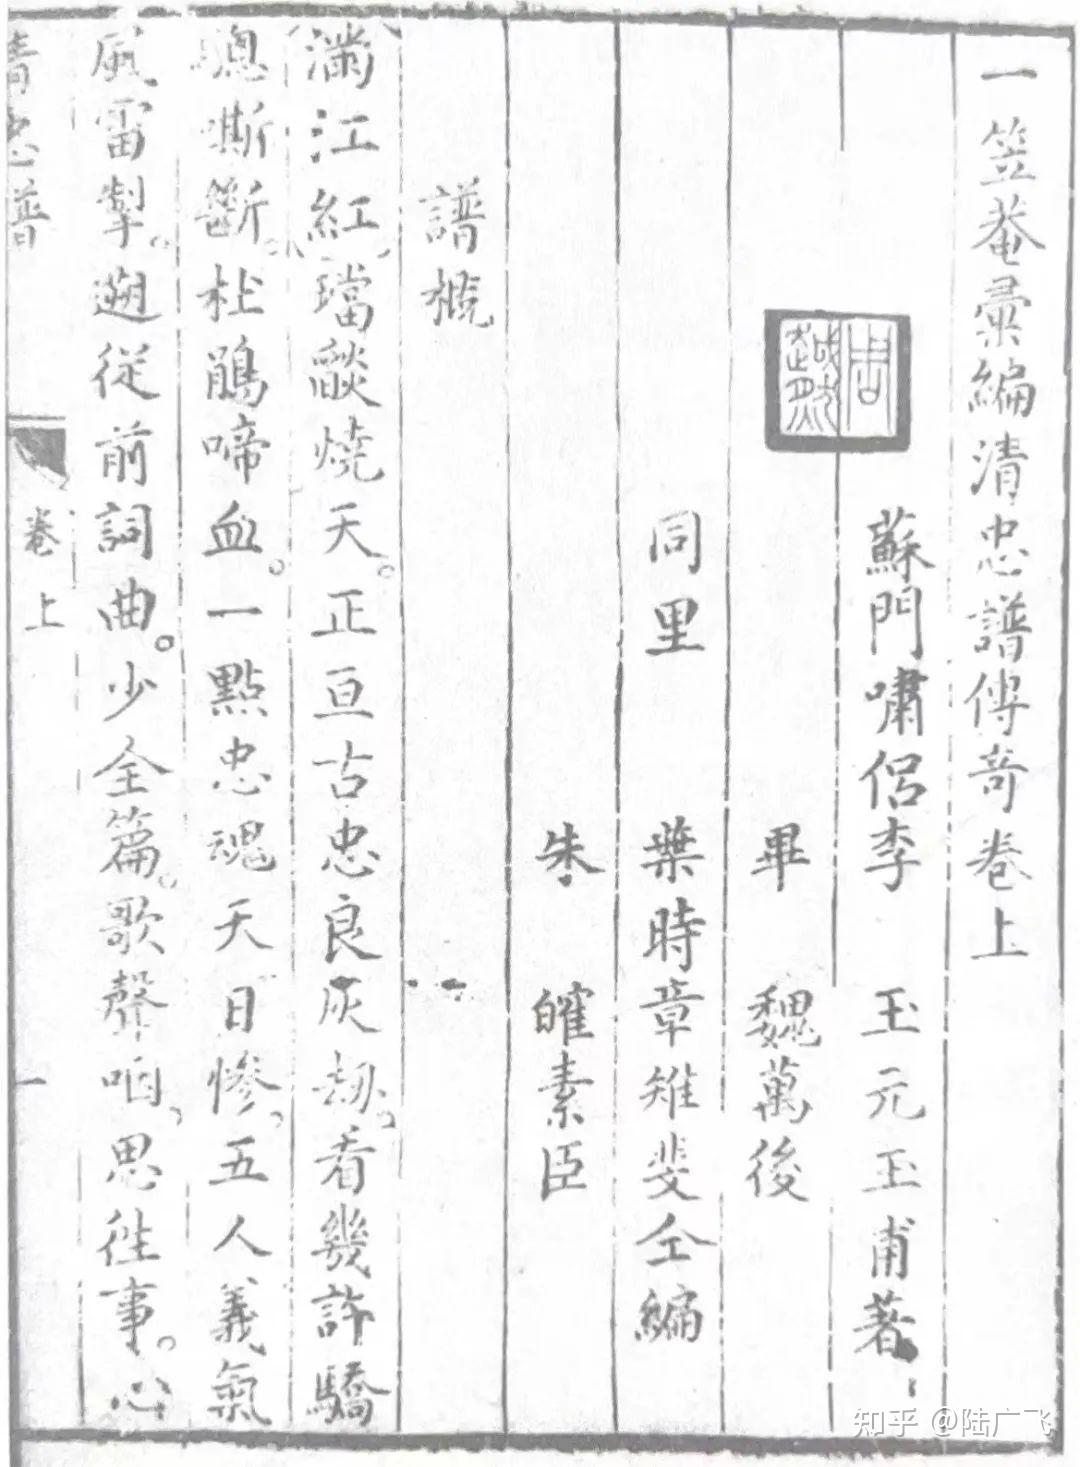 一笠菴彙編清忠譜傳奇卷上
蘇門嘯侶李 玉元玉甫著
畢 魏萬後
同里 葉時章雉斐仝編
朱 㿥素臣
譜概
滿江紅璫燄燒天。正亘古忠良灰劫。看幾許驕
驄嘶斷。杜鵑啼血。一點忠魂天日慘。五人義氣
風雷掣。遡從前詞曲。少全篇。歌聲咽。思徃事。心
清忠譜
卷上
一
知乎 @陆广飞